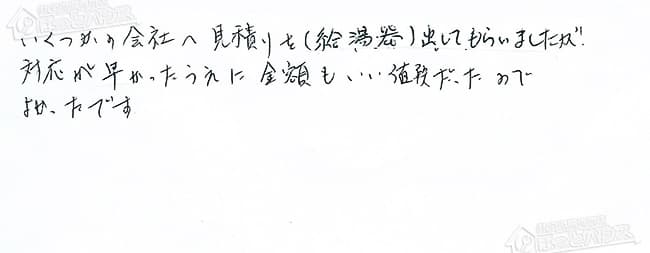 いくつかの会社へ見積りを(給湯器)出してもらいましたが
対応が早かったうえに金額もいい値段だったので
よかったです